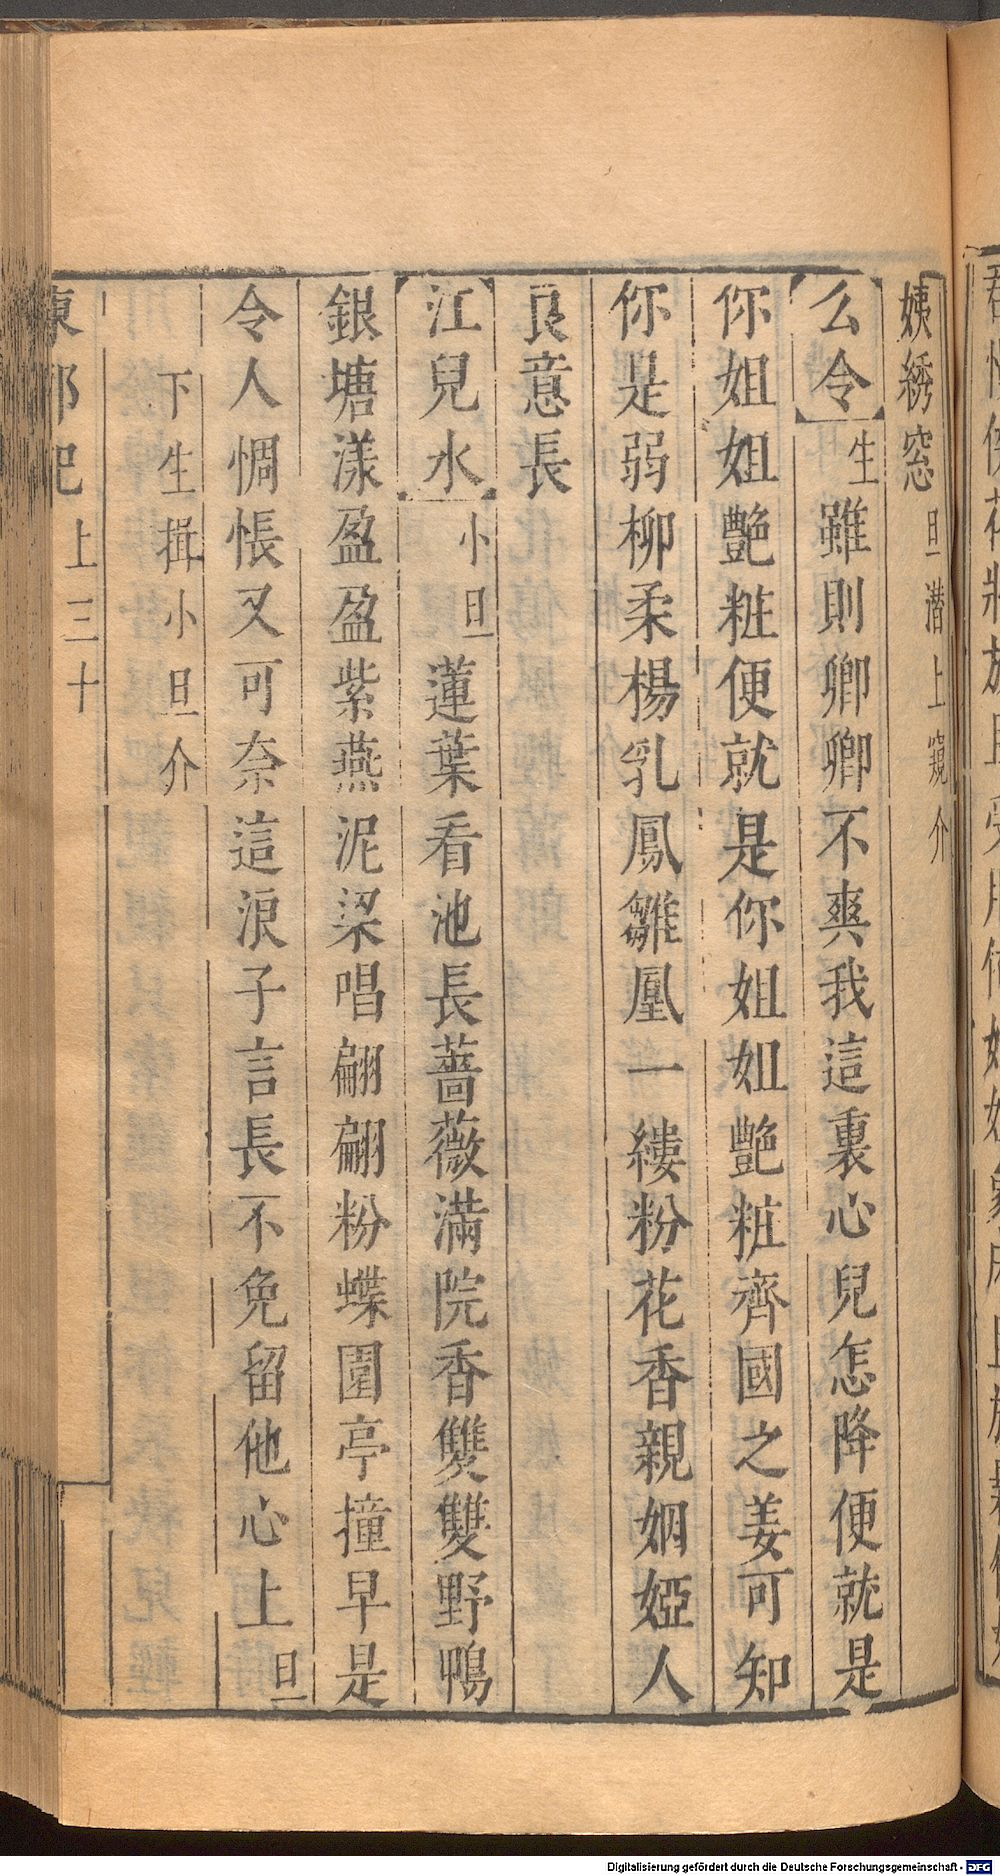 姨綉窓旦潛上窺介
么令生雖則卿卿不爽我這裏心兒怎降便就是
你姐姐艷粧便就是你姐姐艷粧齊國之姜可知
你是弱柳柔楊乳鳳雛凰一縷粉花香親姻婭人
良意長
江兒水小旦蓮葉看池長薔薇滿院香雙雙野鴨
銀塘漾盈盈紫燕泥梁唱翩翩粉蝶園亭撞早是
令人惆悵又可奈這浪子言長不免留他心上旦
下生揖小旦介
東郭記上三十
Digitalisierung gefördert durch die Deutsche Forschungsgemeinschaft - DFG